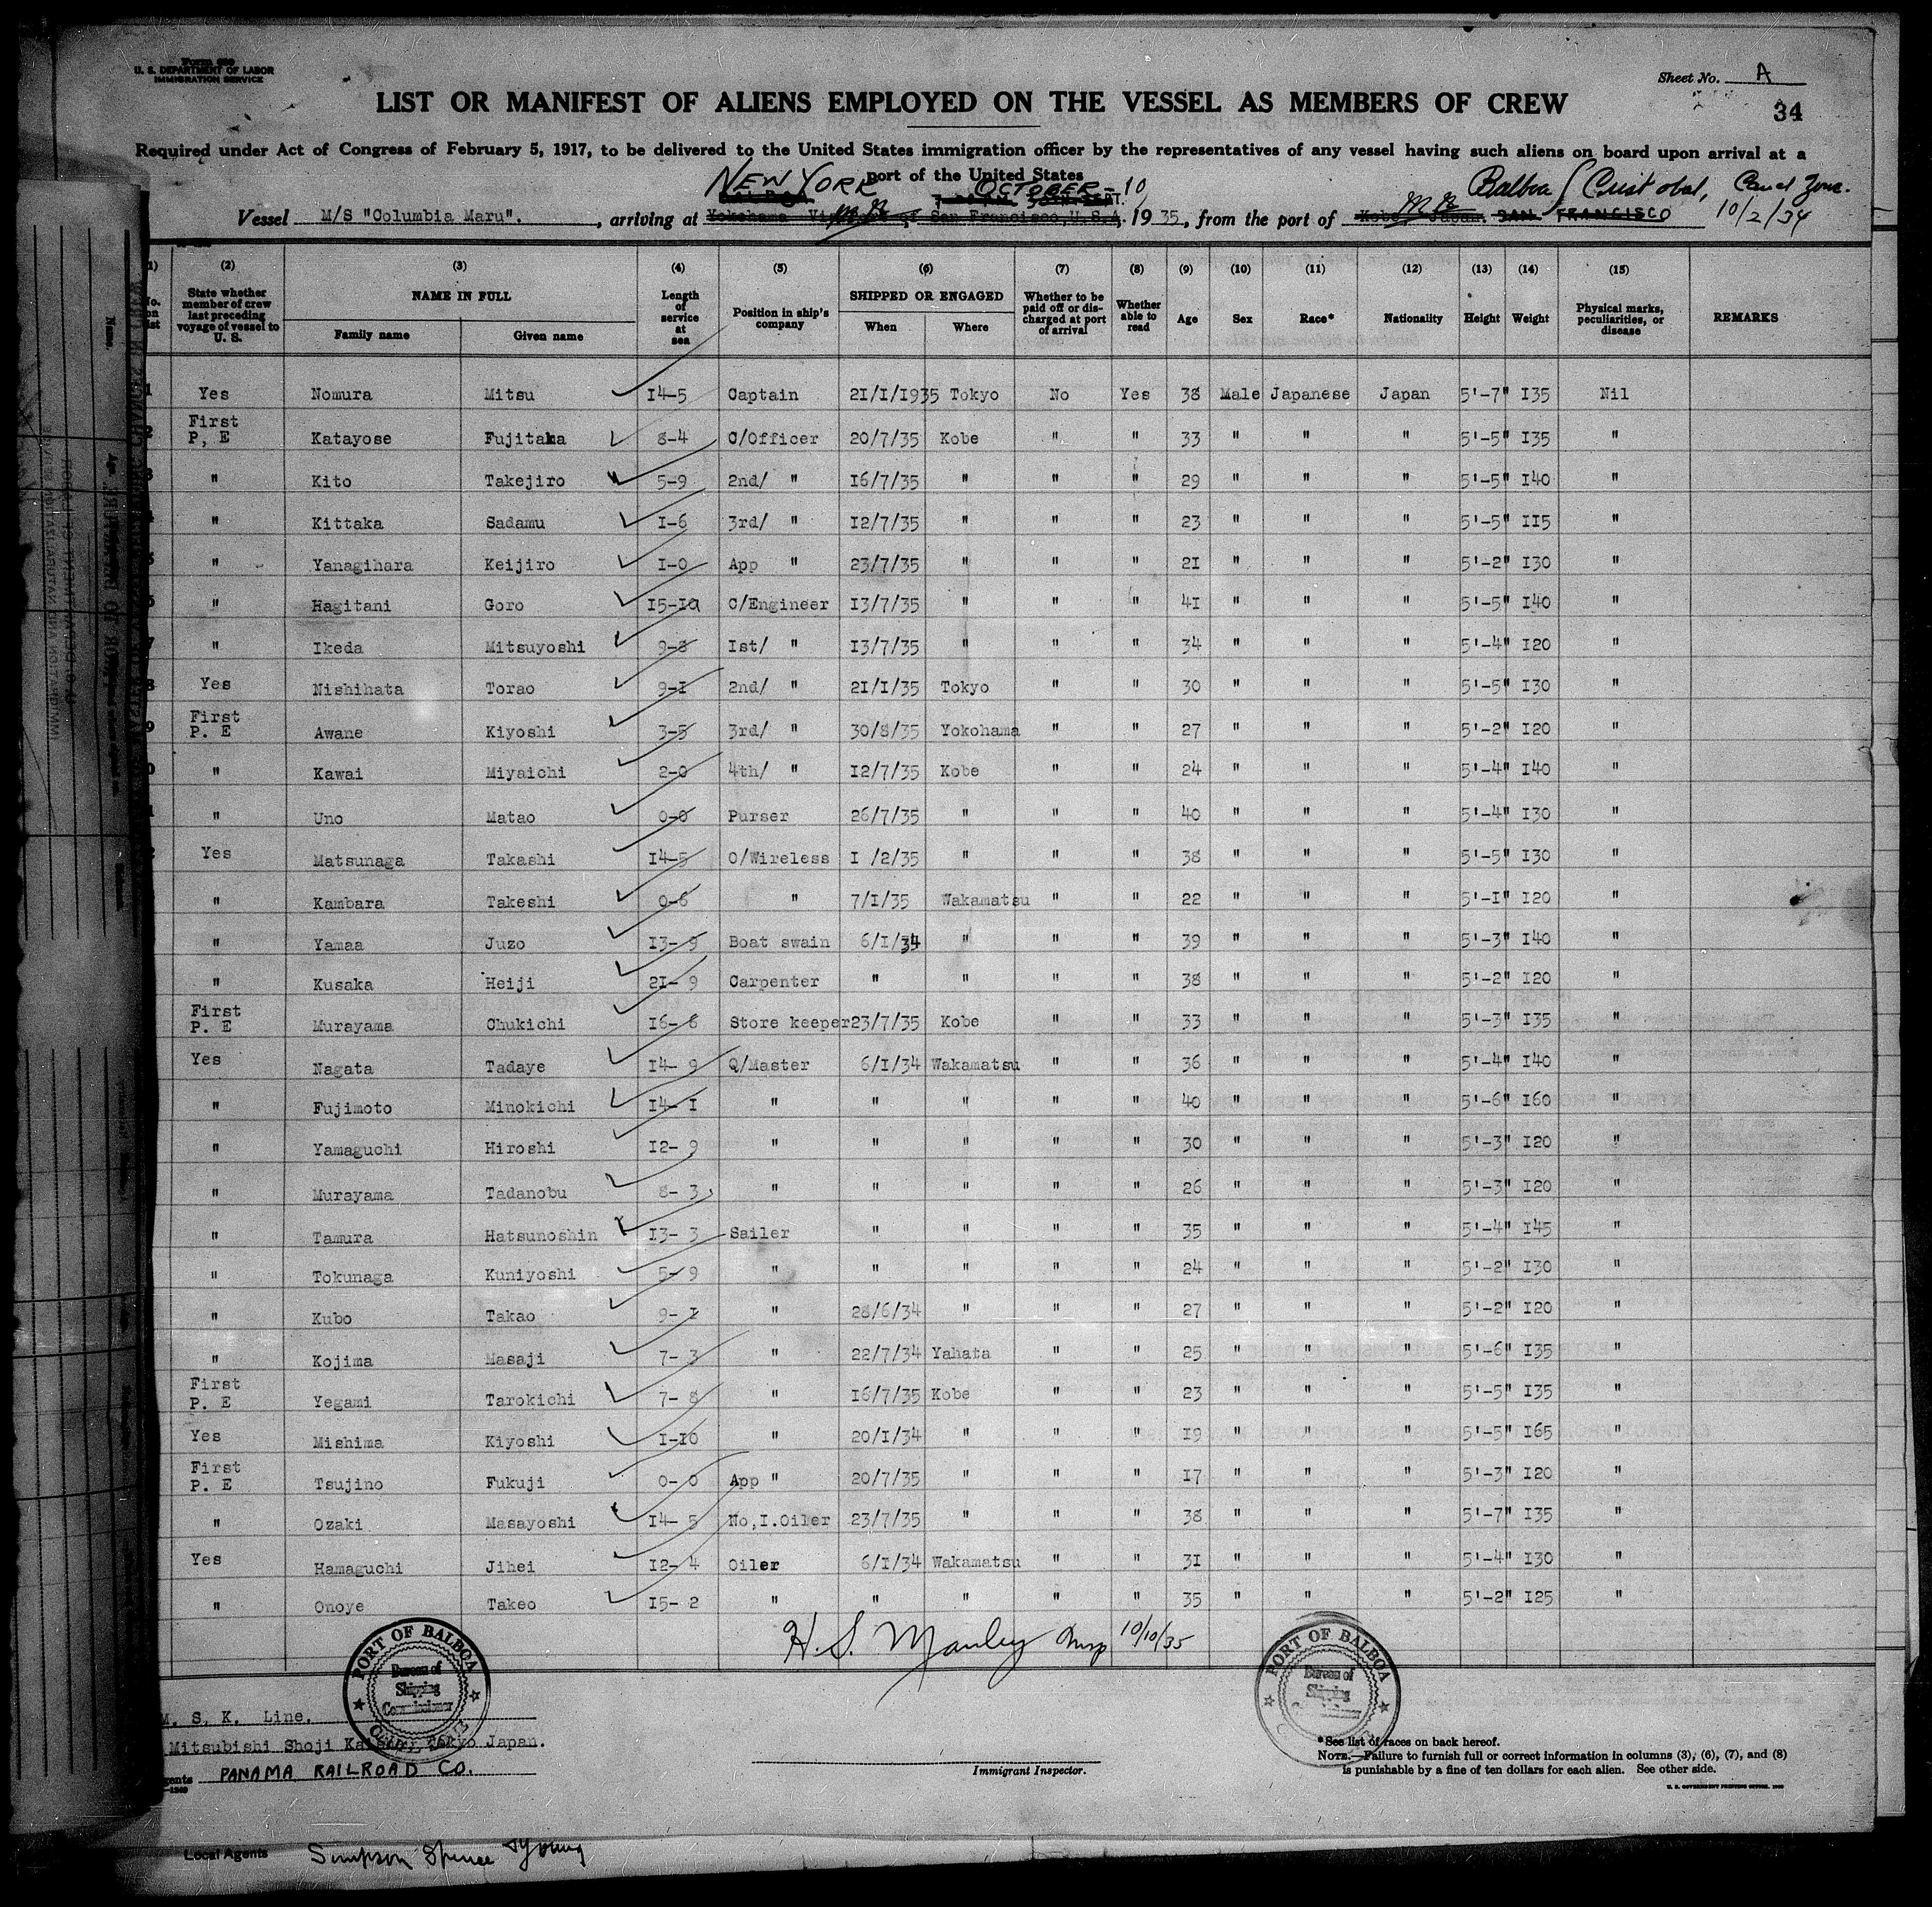 Form 689
U. S. DEPARTMENT OF LABOR
IMMIGRATION SERVICE
Sheet No. A
34
LIST OR MANIFEST OF ALIENS EMPLOYED ON THE VESSEL AS MEMBERS OF CREW
Required under Act of Congress of February 5, 1917, to be delivered to the United States immigration officer by the representatives of any vessel having such aliens on board upon arrival at a
port of the United States
NEW YORK OCTOBER-10 Balboa / Cristobal, Canal Zone.
Vessel M/S "Columbia Maru"., arriving at Yokohama San Francisco, U.S.A. 1935, from the port of Kobe Japan. SAN FRANCISCO 10/2/34
(1) (2) (3) (4) (5) (6) (7) (8) (9) (10) (11) (12) (13) (14) (15)
No. on list State whether member of crew last preceding voyage of vessel to U. S. NAME IN FULL Family name Given name Length of service at sea Position in ship's company SHIPPED OR ENGAGED When Where Whether to be paid off or discharged at port of arrival Whether able to read Age Sex Race* Nationality Height Weight Physical marks, peculiarities, or disease REMARKS
1 Yes Nomura Mitsu 14-5 Captain 21/1/1935 Tokyo No Yes 38 Male Japanese Japan 5'-7" 135 Nil
2 First P, E Katayose Fujitaka 8-4 C/Officer 20/7/35 Kobe " " 33 " " " 5'-5" 135 "
3 " Kito Takejiro 5-9 2nd/ " 16/7/35 " " " 29 " " " 5'-5" 140 "
4 " Kittaka Sadamu 1-6 3rd/ " 12/7/35 " " " 23 " " " 5'-5" 115 "
5 " Yanagihara Keijiro 1-0 App " 23/7/35 " " " 21 " " " 5'-2" 130 "
6 " Hagitani Goro 15-10 C/Engineer 13/7/35 " " " 41 " " " 5'-5" 140 "
7 " Ikeda Mitsuyoshi 9-8 1st/ " 13/7/35 " " " 34 " " " 5'-4" 120 "
8 Yes Nishihata Torao 9-1 2nd/ " 21/1/35 Tokyo " " 30 " " " 5'-5" 130 "
9 First P. E Awane Kiyoshi 3-5 3rd/ " 30/8/35 Yokohama " " 27 " " " 5'-2" 120 "
0 " Kawai Miyaichi 2-0 4th/ " 12/7/35 Kobe " " 24 " " " 5'-4" 140 "
1 " Uno Matao 0-0 Purser 26/7/35 " " " 40 " " " 5'-4" 130 "
2 Yes Matsunaga Takashi 14-5 O/Wireless 1 /2/35 " " " 38 " " " 5'-5" 130 "
" Kambara Takeshi 0-6 " 7/1/35 Wakamatsu " " 22 " " " 5'-1" 120 "
" Yamaa Juzo 13-9 Boat swain 6/1/34 " " " 39 " " " 5'-3" 140 "
" Kusaka Heiji 21-9 Carpenter " " " " 38 " " " 5'-2" 120 "
First P. E Murayama Chukichi 16-8 Store keeper 23/7/35 Kobe " " 33 " " " 5'-3" 135 "
Yes Nagata Tadaye 14-9 Q/Master 6/1/34 Wakamatsu " " 36 " " " 5'-4" 140 "
" Fujimoto Minokichi 14-1 " " " " " 40 " " " 5'-6" 160 "
" Yamaguchi Hiroshi 12-9 " " " " " 30 " " " 5'-3" 120 "
" Murayama Tadanobu 8-3 " " " " " 26 " " " 5'-3" 120 "
" Tamura Hatsunoshin 13-3 Sailer " " " " 35 " " " 5'-4" 145 "
" Tokunaga Kuniyoshi 5-9 " " " " " 24 " " " 5'-2" 130 "
" Kubo Takao 9-1 " 28/6/34 " " " 27 " " " 5'-2" 120 "
" Kojima Masaji 7-3 " 22/7/34 Yahata " " 25 " " " 5'-6" 135 "
First P. E Yegami Tarokichi 7-8 " 16/7/35 Kobe " " 23 " " " 5'-5" 135 "
Yes Mishima Kiyoshi 1-10 " 20/1/34 " " " 19 " " " 5'-5" 165 "
First P. E Tsujino Fukuji 0-0 App " 20/7/35 " " " 17 " " " 5'-3" 120 "
" Ozaki Masayoshi 14-5 No,1.Oiler 23/7/35 " " " 38 " " " 5'-7" 135 "
Yes Hamaguchi Jihei 12-4 Oiler 6/1/34 Wakamatsu " " 31 " " " 5'-4" 130 "
" Onoye Takeo 15-2 " " " " " 35 " " " 5'-2" 125 "
H. S. Manley Insp 10/10/35
PORT OF BALBOA Bureau of Shipping Commissioner
PORT OF BALBOA Bureau of Shipping
M. S. K. Line.
Mitsubishi Shoji Kaisha, Tokyo Japan.
Agents PANAMA RAILROAD CO.
Immigrant Inspector.
*See list of races on back hereof.
NOTE.—Failure to furnish full or correct information in columns (3), (6), (7), and (8)
is punishable by a fine of ten dollars for each alien. See other side.
U. S. GOVERNMENT PRINTING OFFICE
Local Agents Simpson Spence & Young